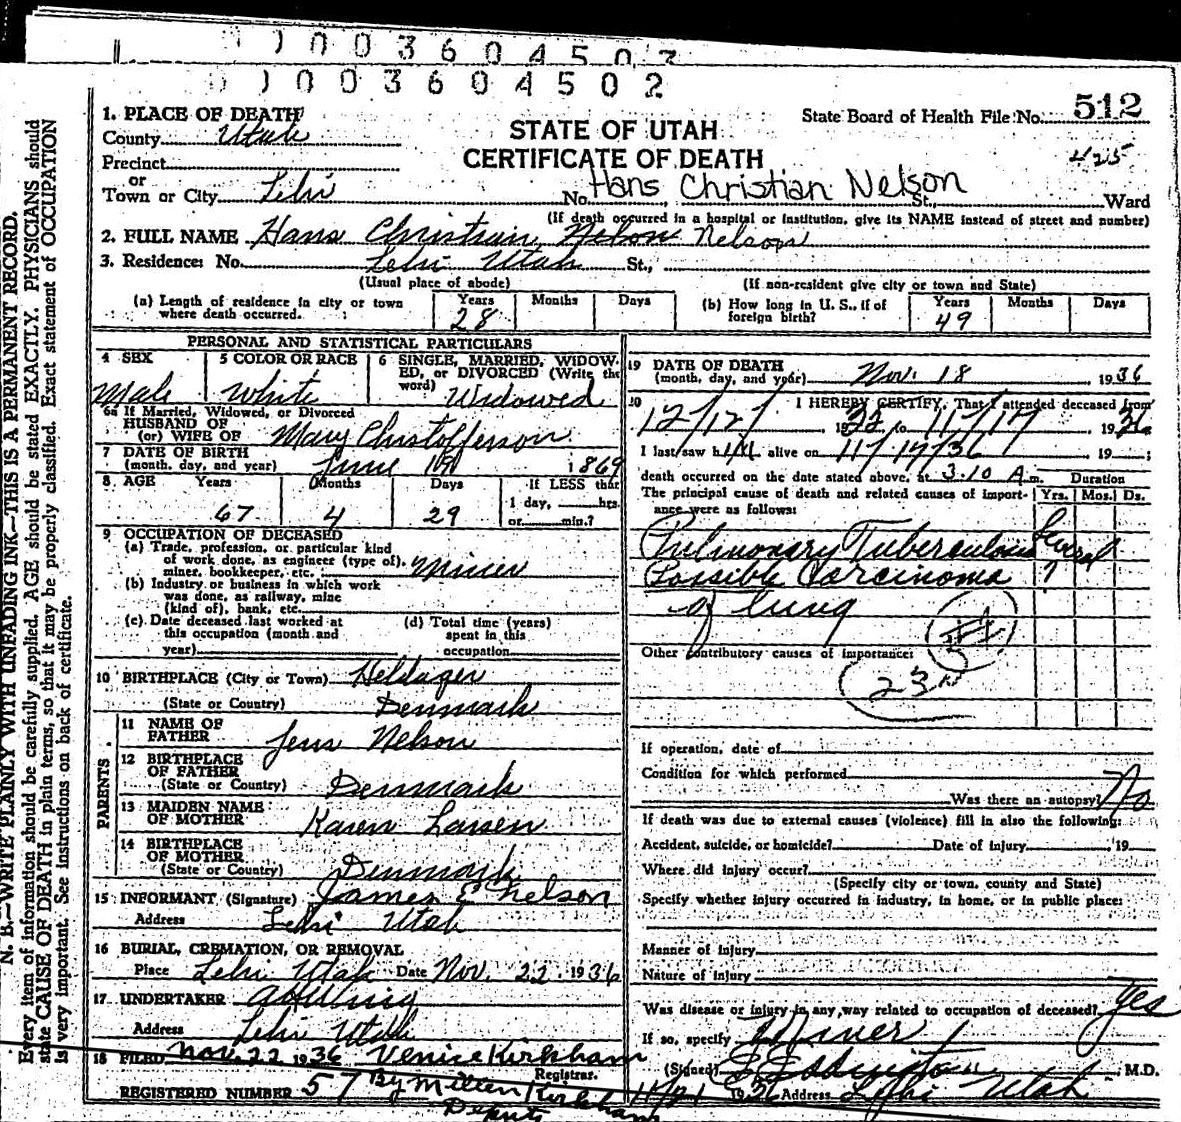 0 0 3 6 0 4 5 0 2
0 0 3 6 0 4 5 0 2
State Board of Health File No. 512
425
STATE OF UTAH
CERTIFICATE OF DEATH
1. PLACE OF DEATH
County Utah
Precinct
or
Town or City Lehi No. Hans Christian Nelson St., Ward
(If death occurred in a hospital or institution, give its NAME instead of street and number)
2. FULL NAME Hans Christian Nelson Nelson
3. Residence: No. Lehi Utah St.,
(Usual place of abode) (If non-resident give city or town and State)
(a) Length of residence in city or town where death occurred. Years 28 Months Days
(b) How long in U. S., if of foreign birth? Years 49 Months Days
PERSONAL AND STATISTICAL PARTICULARS
4 SEX Male
5 COLOR OR RACE White
6 SINGLE, MARRIED, WIDOWED, or DIVORCED (Write the word) Widowed
6a If Married, Widowed, or Divorced
HUSBAND OF
(or) WIFE OF Mary Christofferson
7 DATE OF BIRTH
(month, day, and year) June 1869
8. AGE Years 67 Months 4 Days 29 If LESS than 1 day, hrs. or min.?
9 OCCUPATION OF DECEASED
(a) Trade, profession, or particular kind of work done, as engineer (type of), miner, bookkeeper, etc. Miner
(b) Industry or business in which work was done, as railway, mine (kind of), bank, etc.
(c) Date deceased last worked at this occupation (month and year)
(d) Total time (years) spent in this occupation
10 BIRTHPLACE (City or Town)
(State or Country) Denmark
PARENTS
11 NAME OF FATHER Jens Nelson
12 BIRTHPLACE OF FATHER
(State or Country) Denmark
13 MAIDEN NAME OF MOTHER Karen Larsen
14 BIRTHPLACE OF MOTHER
(State or Country) Denmark
15 INFORMANT (Signature) James E Nelson
Address Lehi Utah
16 BURIAL, CREMATION, OR REMOVAL
Place Lehi Utah Date Nov. 22, 1936
17 UNDERTAKER
Address Lehi Utah
18 FILED Nov. 22 1936 Venice Kirkham
Registrar.
REGISTERED NUMBER 57 By Milten Kirkham
Deputy
19 DATE OF DEATH
(month, day, and year) Nov. 18, 1936
20 I HEREBY CERTIFY, That I attended deceased from
12/12/ 1932 to 11/17/, 1936
I last saw him alive on 11/17/36, 19 ;
death occurred on the date stated above, at 3.10 A m.
Duration
The principal cause of death and related causes of importance were as follows: Yrs. Mos. Ds.
Pulmonary Tuberculosis Several
Possible Carcinoma ?
of lung
Other contributory causes of importance:
23
If operation, date of
Condition for which performed
Was there an autopsy? No
If death was due to external causes (violence) fill in also the following:
Accident, suicide, or homicide? Date of injury , 19
Where did injury occur?
(Specify city or town, county and State)
Specify whether injury occurred in industry, in home, or in public place:
Manner of Injury
Nature of Injury
Was disease or injury in any way related to occupation of deceased? Yes
If so, specify Miner
(Signed) Eddington, M.D.
11/21 1936 Address Lehi Utah
N. B.—WRITE PLAINLY WITH UNFADING INK—THIS IS A PERMANENT RECORD.
Every item of information should be carefully supplied. AGE should be stated EXACTLY. PHYSICIANS should
state CAUSE OF DEATH in plain terms, so that it may be properly classified. Exact statement of OCCUPATION
is very important. See instructions on back of certificate.